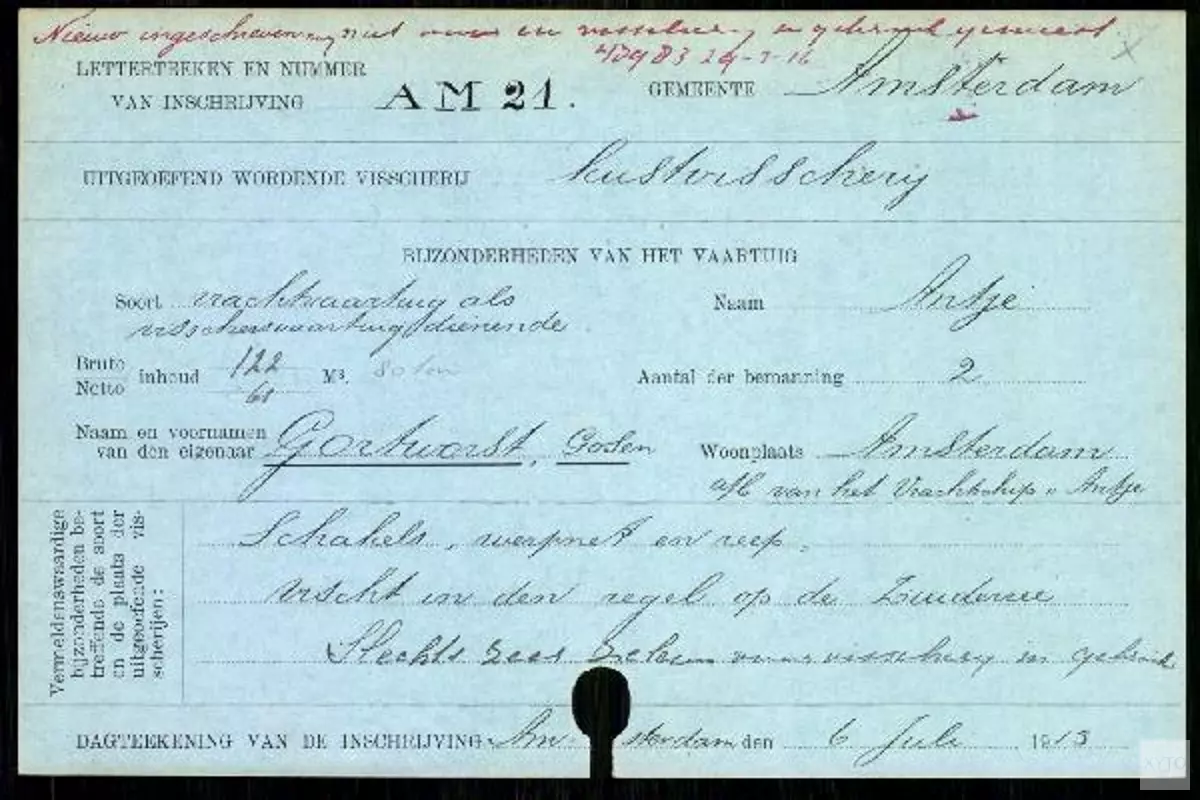 Nieuw ingeschreven niet meer in visscherij in gebruik geweest.
42983 29-7-16
LETTERTEEKEN EN NUMMER
VAN INSCHRIJVING AM 21. GEMEENTE Amsterdam
UITGEOEFEND WORDENDE VISSCHERIJ kustvisscherij
BIJZONDERHEDEN VAN HET VAARTUIG
Soort vrachtvaartuig als Naam Antje
visschersvaartuig dienende
Bruto 122
Netto inhoud 61 M³. 80 ton Aantal der bemanning 2
Naam en voornamen
van den eigenaar Gortworst, Gosen Woonplaats Amsterdam
a/b van het Vrachtschip "Antje
Vermeldenswaardige
bijzonderheden be-
treffende de soort
en de plaats der
uitgeoefende vis-
scherijen:
Schakels, werpnet en reep,
vischt in den regel op de Zuiderzee
Slechts zeer zelden voor visscherij in gebruik
DAGTEEKENING VAN DE INSCHRIJVING Amsterdam den 6 Juli 1913